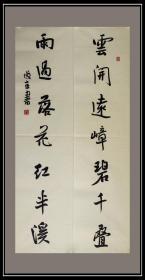 雲開遠嶂碧千疊
雨過落花紅半溪